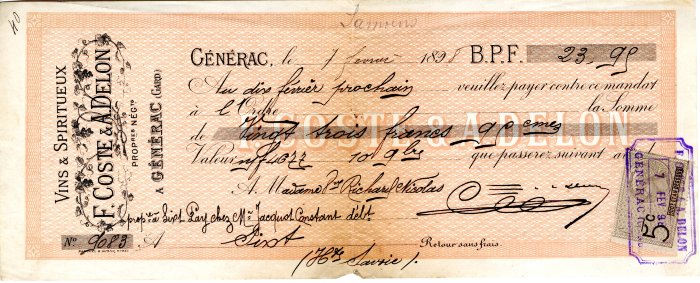 Samoëns
VINS & SPIRITUEUX
F. COSTE & ADELON
PROPRES NÉGTS
A GÉNÉRAC (GARD)
GÉNÉRAC, le 7 février 1898 B.P.F. 23.95
Au dix février prochain veuillez payer contre ce mandat
à l'Ordre la Somme
de Vingt trois francs 90 cmes
F. COSTE & ADELON
Valeur 10 9bre que passerez suivant
A Madame Richard Nicolas
à Sixt Pay chez Mr Jacquot Constant débt
No 9083 A Sixt Retour sans frais.
(Hte Savoie).
ADELON
7 FEV 98
GÉNÉRAC
5c